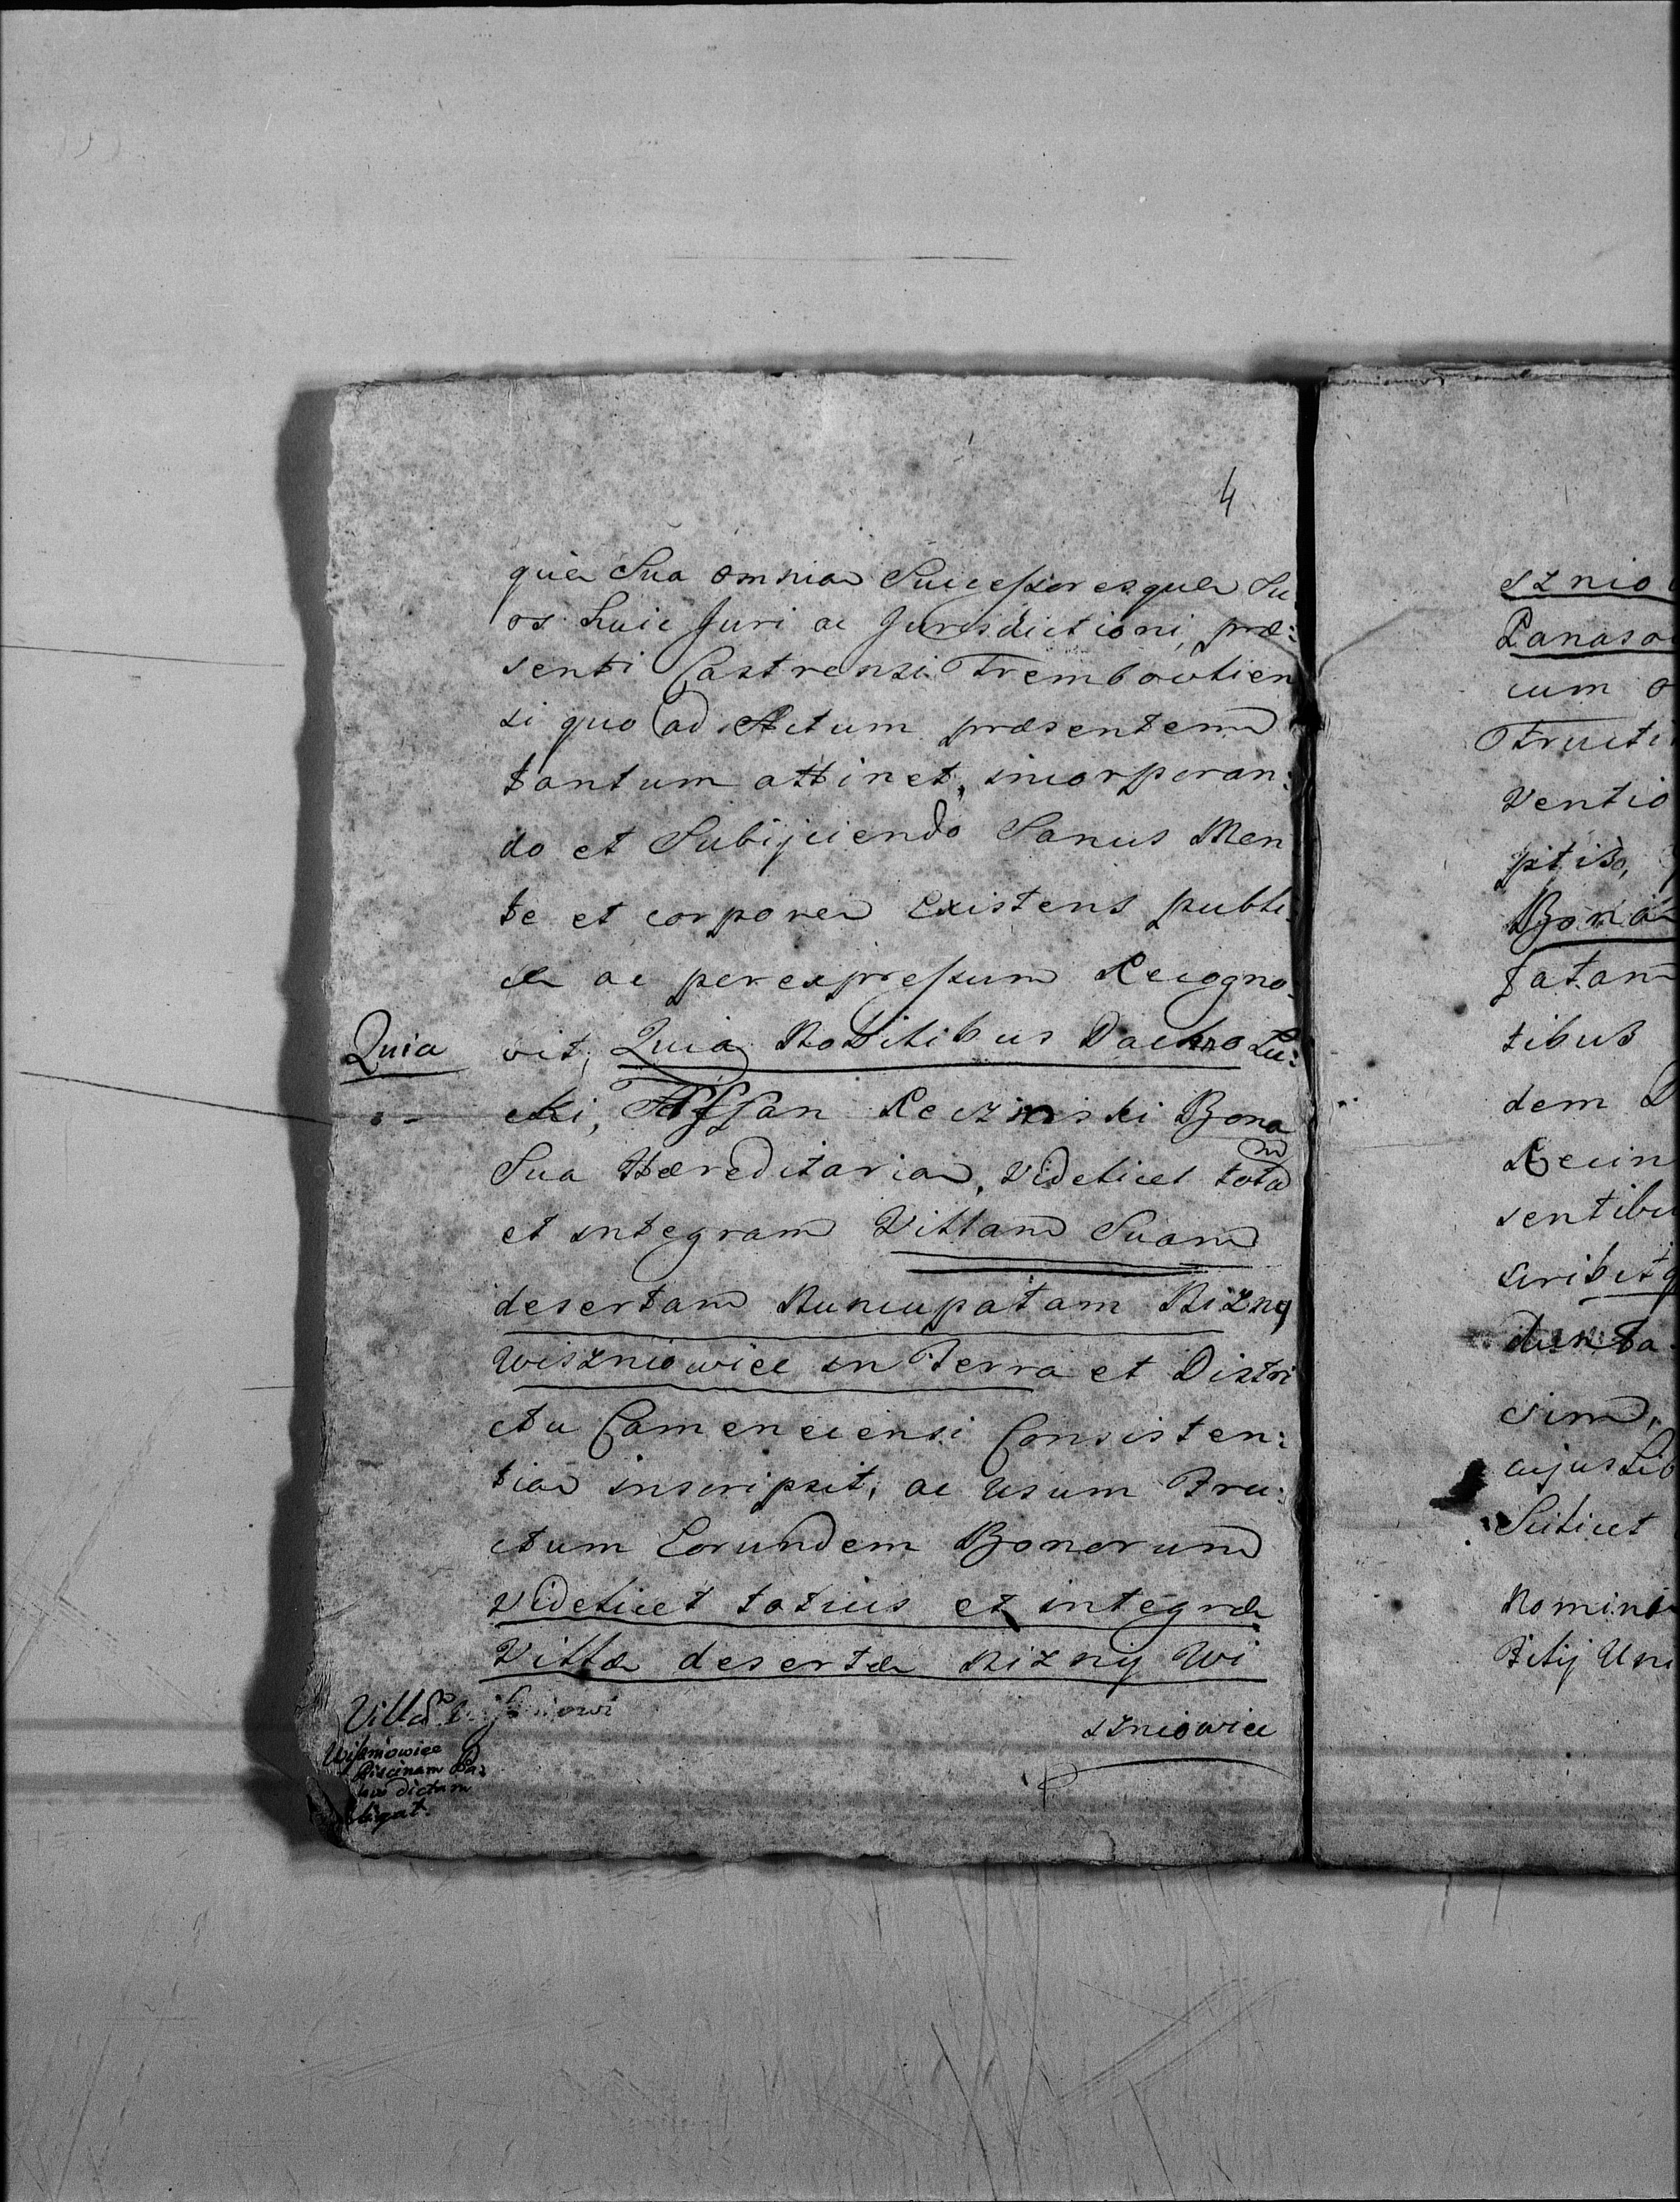 4
quæ Sua omnia Successoresquæ Su
os huic Juri ac Jurisdictioni, præ:
senti Castrensi Trembovlien
si quo ad Actum præsentem
tantum attinet, incorporan:
do et Subijciendo Sanus Men
te et corpore Existens publi
ce ac per expressum Recogno-
Quia
vit, Quia Nobilibus Dachno Lu:
cki, Assan Recznski Bona
Sua Hæreditaria, Videlicet totam
et integram Villam Suam
desertam Nuncupatam Nizny
Wiszniowice in Terra et Distri
ctu Camenecensi Consisten:
tia inscripsit, ac Usum Fru:
ctum Eorundem Bonorum
Videlicet totius et integræ
Villæ desertæ Nizny Wi
szniowice
Villa
Wiszniowice
Piscinam
dictam
ligat.
sznio
Panaso
cum
Fructi
Ventio
ptiso,
Bona
tatam
tibus
dem
Recin
sentibu
scribit
dunta
cim,
cujus Lib
Scilicet
Nomine
Uni